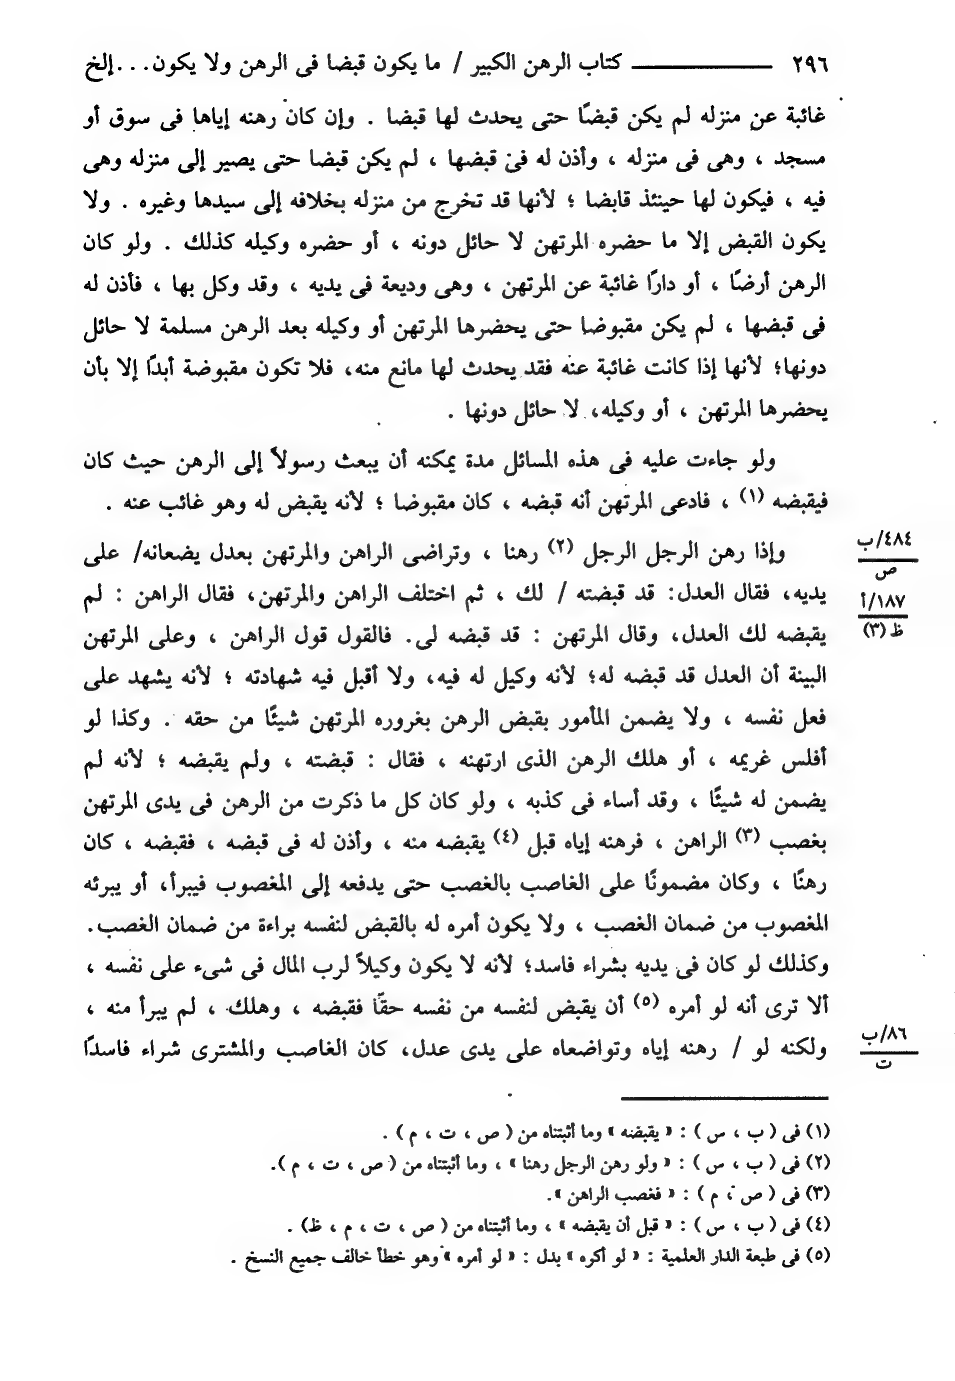 ٢٩٦ ــــــــــــ كتاب الرهن الكبير / ما يكون قبضا فى الرهن ولا يكون . . . إلخ
غائبة عن منزله لم يكن قبضًا حتى يحدث لها قبضا . وإن كان رهنه إياها فى سوق أو
مسجد ، وهى فى منزله ، وأذن له فى قبضها ، لم يكن قبضا حتى يصير إلى منزله وهى
فيه ، فيكون لها حينئذ قابضا ؛ لأنها قد تخرج من منزله بخلافه إلى سيدها وغيره . ولا
يكون القبض إلا ما حضره المرتهن لا حائل دونه ، أو حضره وكيله كذلك . ولو كان
الرهن أرضًا ، أو دارًا غائبة عن المرتهن ، وهى وديعة فى يديه ، وقد وكل بها ، فأذن له
فى قبضها ، لم يكن مقبوضا حتى يحضرها المرتهن أو وكيله بعد الرهن مسلمة لا حائل
دونها؛ لأنها إذا كانت غائبة عنه فقد يحدث لها مانع منه، فلا تكون مقبوضة أبدًا إلا بأن
يحضرها المرتهن ، أو وكيله، لا حائل دونها .
ولو جاءت عليه فى هذه المسائل مدة يمكنه أن يبعث رسولاً إلى الرهن حيث كان
فيقبضه (١) ، فادعى المرتهن أنه قبضه ، كان مقبوضا ؛ لأنه يقبض له وهو غائب عنه .
وإذا رهن الرجل الرجل (٢) رهنا ، وتراضى الراهن والمرتهن بعدل يضعانه/ على
٤٨٤/ب
ص
يديه، فقال العدل: قد قبضته / لك ، ثم اختلف الراهن والمرتهن، فقال الراهن : لم
١٨٧/أ
ظ (٣)
يقبضه لك العدل، وقال المرتهن : قد قبضه لى. فالقول قول الراهن ، وعلى المرتهن
البينة أن العدل قد قبضه له؛ لأنه وكيل له فيه، ولا أقبل فيه شهادته ؛ لأنه يشهد على
فعل نفسه ، ولا يضمن المأمور بقبض الرهن بغروره المرتهن شيئًا من حقه . وكذا لو
أفلس غريمه ، أو هلك الرهن الذى ارتهنه ، فقال : قبضته ، ولم يقبضه ؛ لأنه لم
يضمن له شيئًا ، وقد أساء فى كذبه ، ولو كان كل ما ذكرت من الرهن فى يدى المرتهن
بغصب (٣) الراهن ، فرهنه إياه قبل (٤) يقبضه منه ، وأذن له فى قبضه ، فقبضه ، كان
رهنًا ، وكان مضمونًا على الغاصب بالغصب حتى يدفعه إلى المغصوب فيبرأ، أو يبرئه
المغصوب من ضمان الغصب ، ولا يكون أمره له بالقبض لنفسه براءة من ضمان الغصب.
وكذلك لو كان فى يديه بشراء فاسد؛ لأنه لا يكون وكيلاً لرب المال فى شىء على نفسه ،
ألا ترى أنه لو أمره (٥) أن يقبض لنفسه من نفسه حقًا فقبضه ، وهلك ، لم يبرأ منه ،
ولكنه لو / رهنه إياه وتواضعاه على يدى عدل، كان الغاصب والمشترى شراء فاسدًا
٨٦/ب
ت
(١) فى ( ب ، س ) : « يقبضه » وما أثبتناه من ( ص ، ت ، م ) .
(٢) فى ( ب ، س ) : « ولو رهن الرجل رهنا » ، وما أثبتناه من ( ص ، ت ، م ).
(٣) فى ( ص ، م ) : « فغصب الراهن ».
(٤) فى ( ب ، س ) : « قبل أن يقبضه » ، وما أثبتناه من ( ص ، ت ، م ، ظ) .
(٥) فى طبعة الدار العلمية : « لو أكره » بدل : « لو أمره » وهو خطأ خالف جميع النسخ .